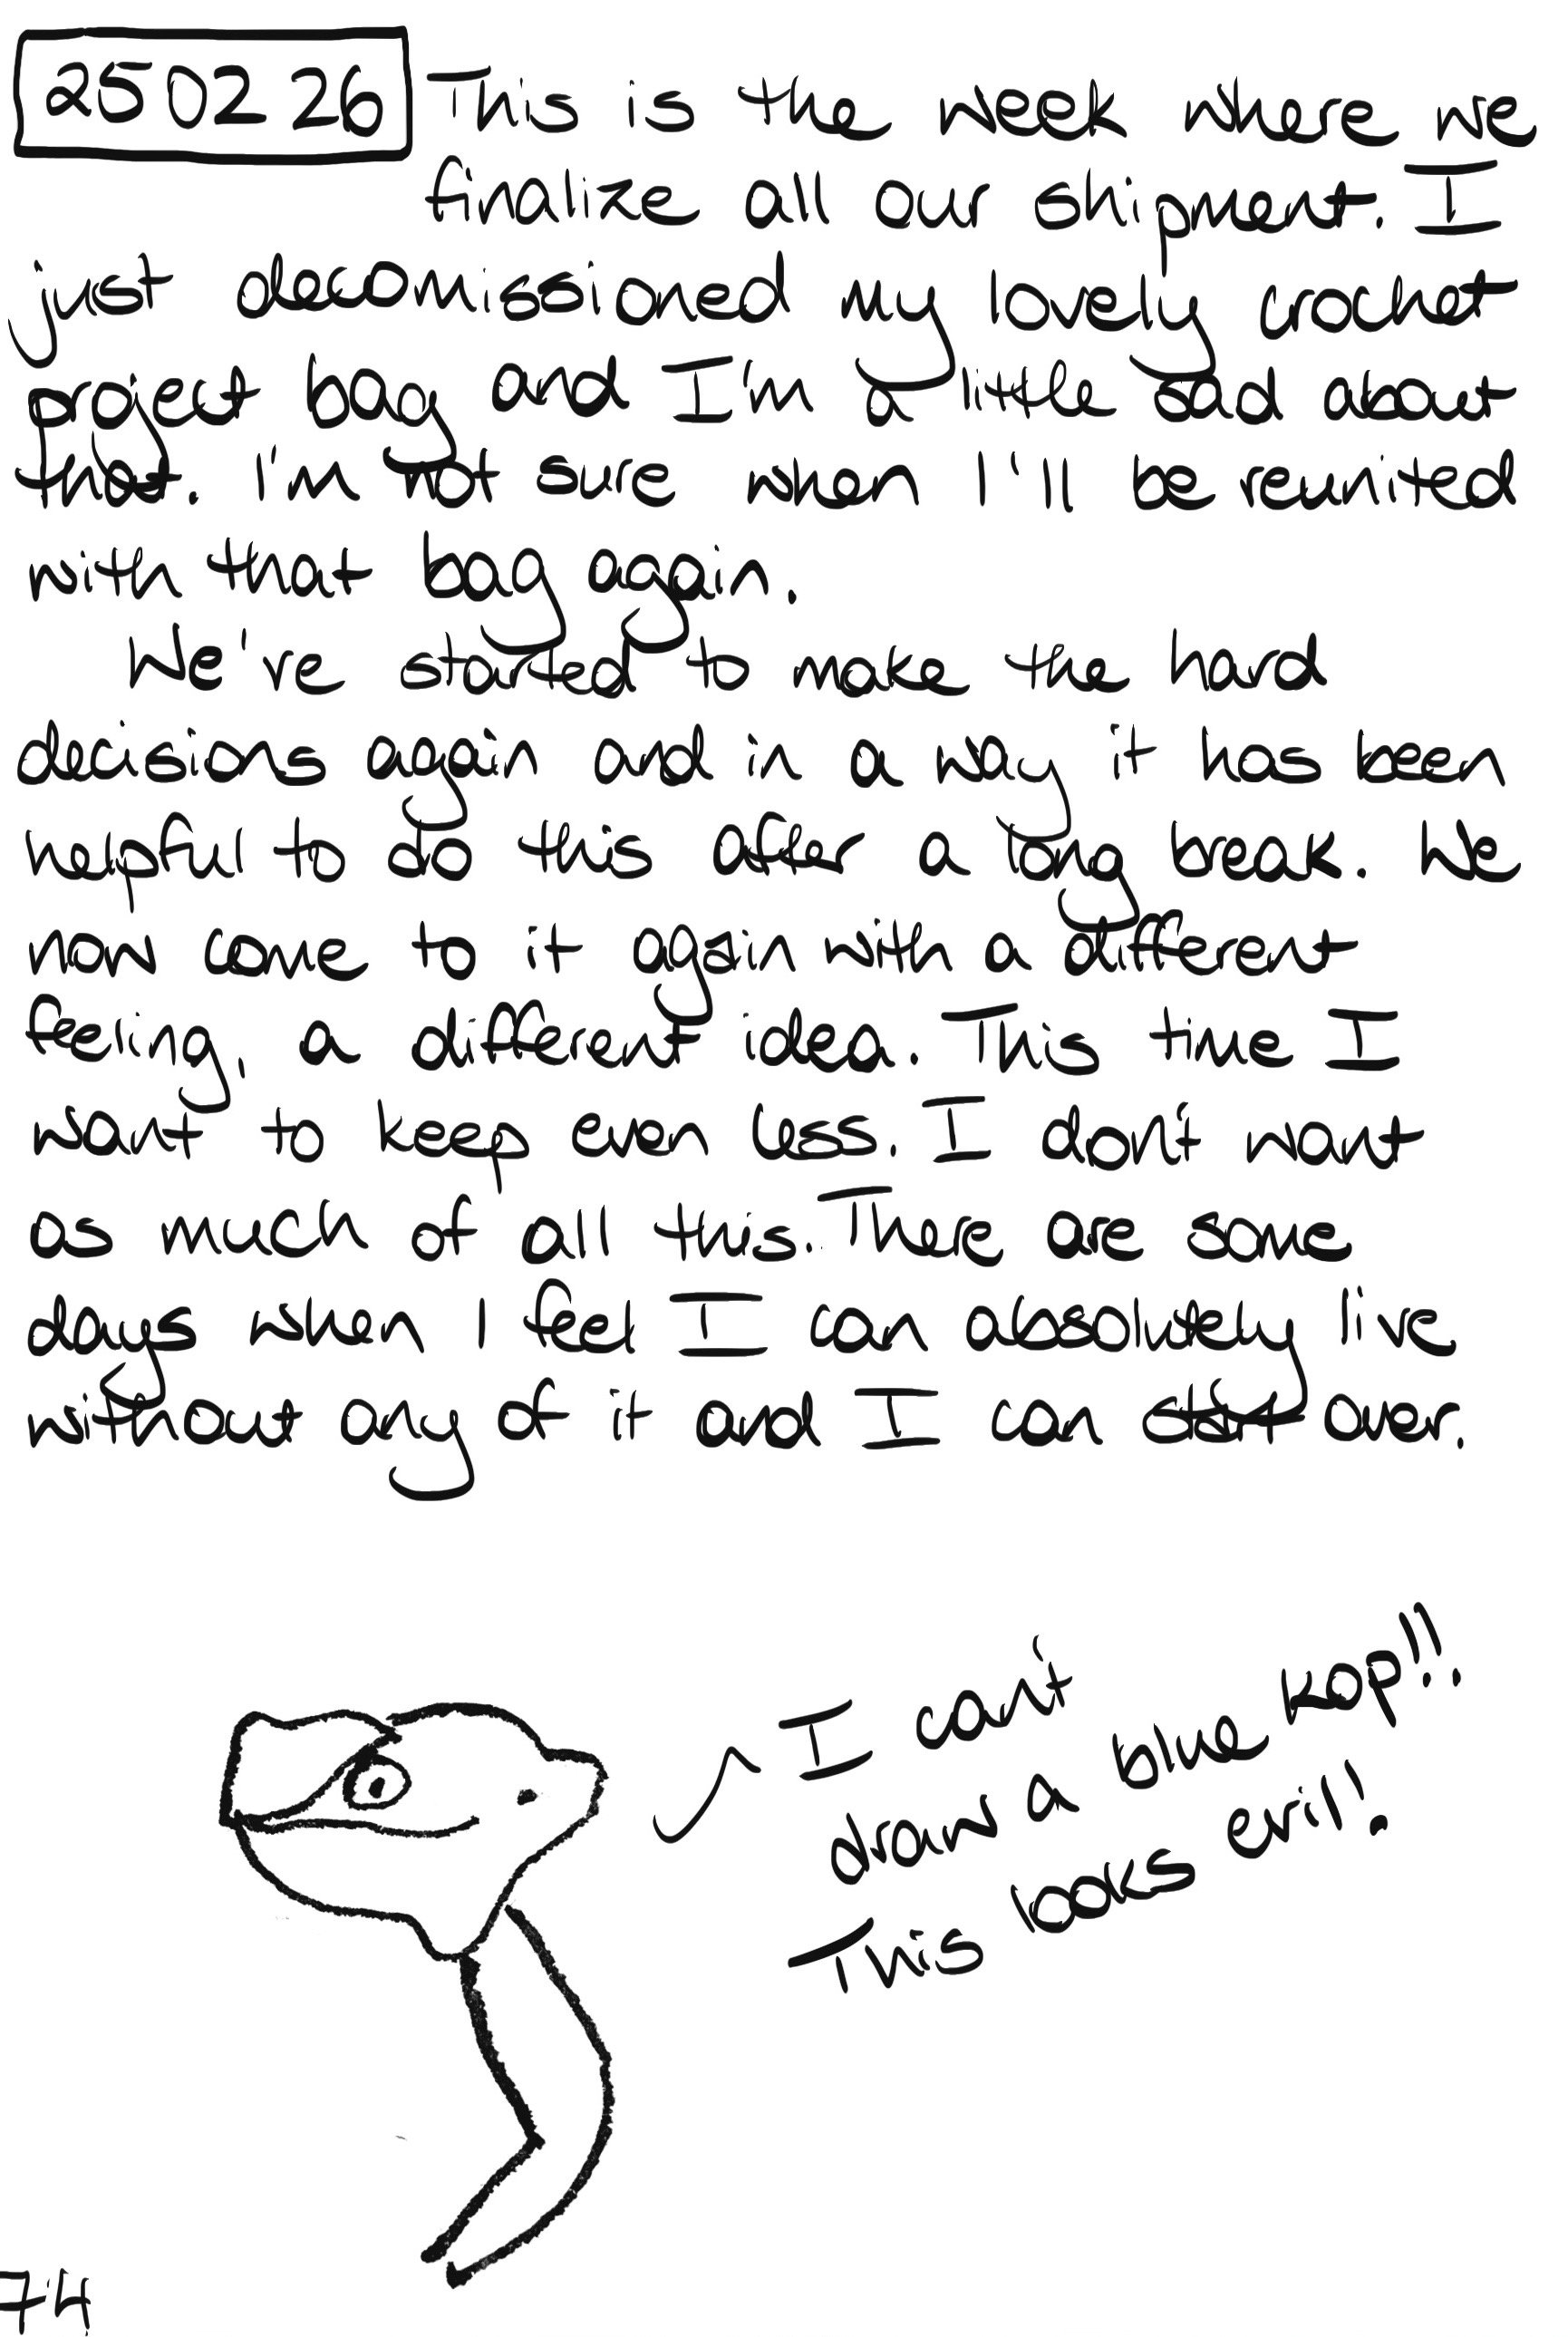 25 02 26 This is the week where we
finalize all our shipment. I
just decomissioned my lovely crochet
project bag and I'm a little sad about
that. I'm not sure when I'll be reunited
with that bag again.
We've started to make the hard
decisions again and in a way it has been
helpful to do this after a long break. We
now come to it again with a different
feeling, a different idea. This time I
want to keep even less. I don't want
as much of all this. There are some
days when I feel I can absolutely live
without any of it and I can start over.
I can't
draw a blue kop!!
This looks evil!
74